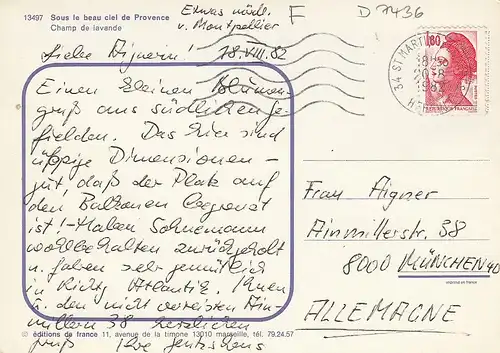 13497 Sous le beau ciel de Provence
Champ de lavande
Etwas nördl.
v. Montpellier
F D 7436
Liebe Aignerin! 18.VIII.82
Einen kleinen Blumen-
gruß aus südlichen Ge-
fielden. Das hier sind
üppige Dimensionen -
gut, daß der Platz auf
den Balkonen begrenzt
ist! - Haben Sohnemann
wohlbehalten zurückgeholt
u. fahren sehr gemütlich
in Richtg Atlantik. Ihnen
u. den nicht verreisten Ain-
millern 38 herzlichen
Gruß Ihre
34 ST MARTIN
18H
1982
1,80
REPUBLIQUE FRANÇAISE
Frau Aigner
Ainmillerstr. 38
8000 MÜNCHEN 40
ALLEMAGNE
imprimé en france
© éditions de france 11, avenue de la timone 13010 marseille, tél. 79.24.57